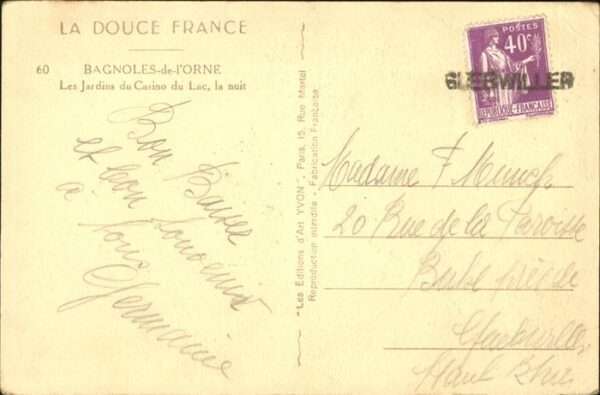 LA DOUCE FRANCE
60 BAGNOLES-de-l'ORNE
Les Jardins du Casino du Lac, la nuit
Bon Baiser
et bon souvenir
à tous
Germaine
"Les Editions d'Art YVON", Paris, 15, Rue Martel
Reproduction interdite - Fabrication Française
POSTES
40c
REPUBLIQUE-FRANÇAISE
GUERWILLER
Madame F Munch
20 Rue de la Paroisse
Haut Rhin